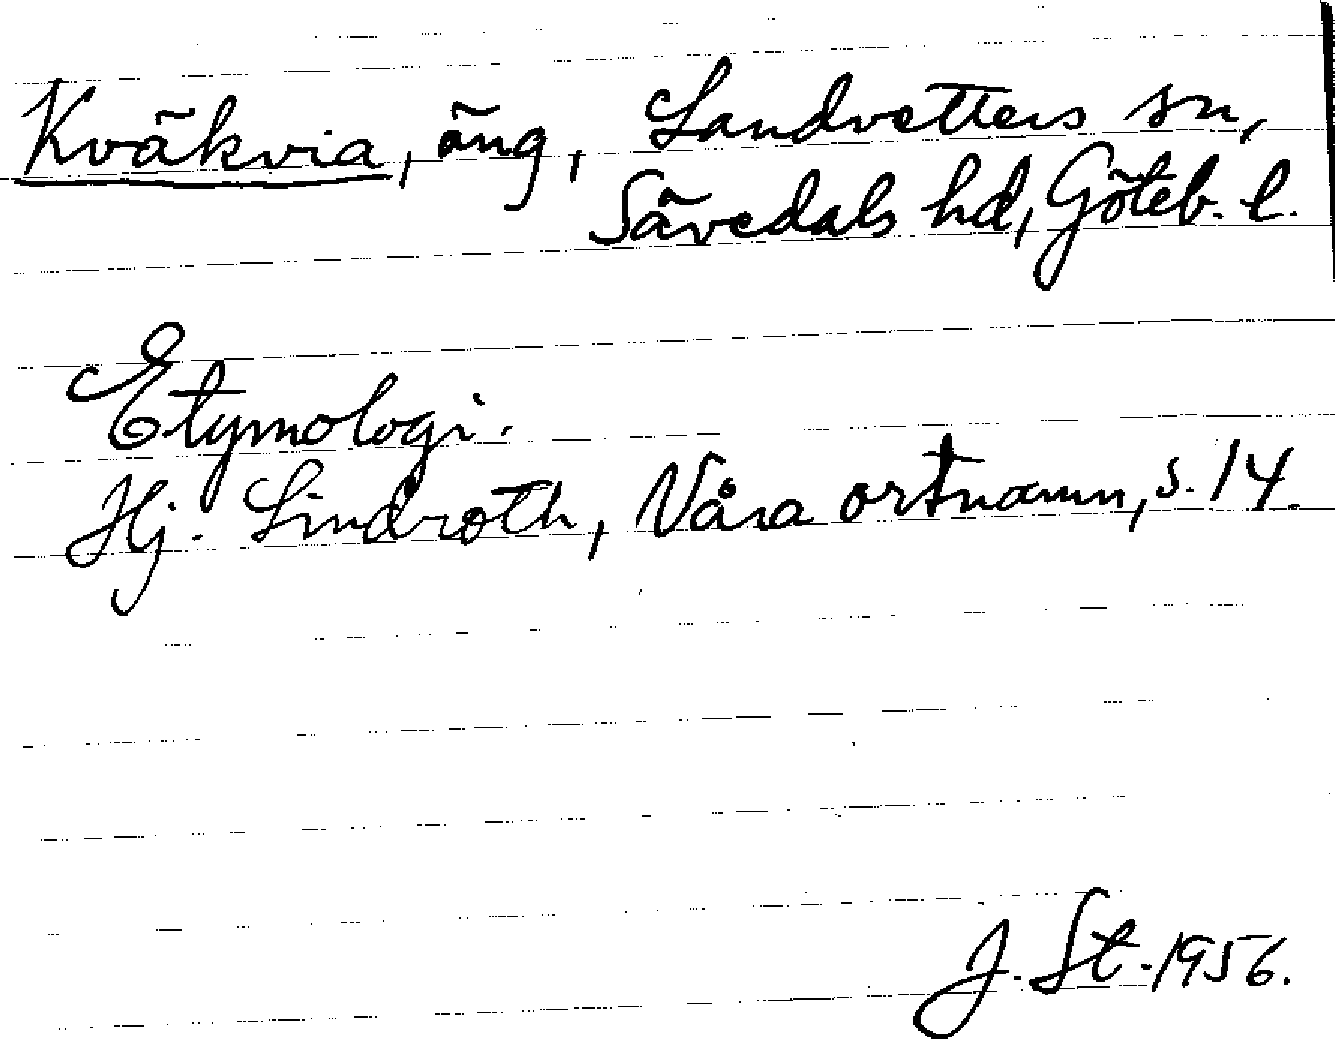 Kväkvia, äng, Landvetters sn,
Sävedals hd, Göteb. l.
Etymologi.
Hj. Lindroth, Våra ortnamn, s. 14.
J. St. 1956.